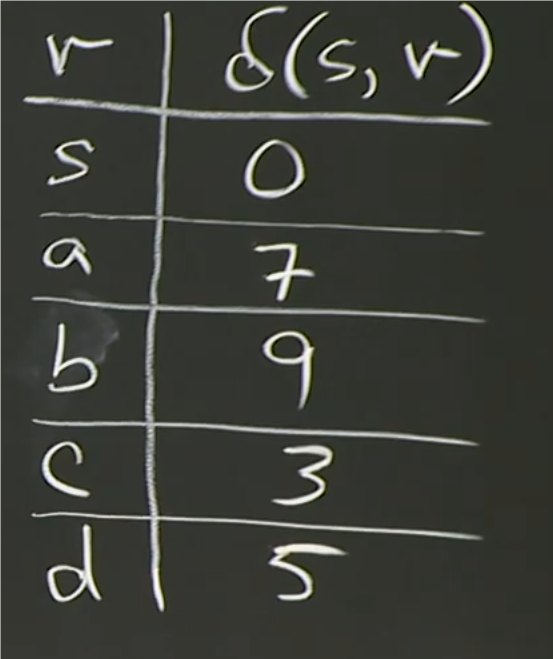 v δ(s, v)
s 0
a 7
b 9
c 3
d 5